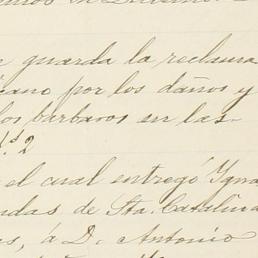 guarda la reclama
cano por los daños y
los barbaros en las-
2
el cual entregó Ygna
ndas de Sta. Catalina
as, á D. Antonio